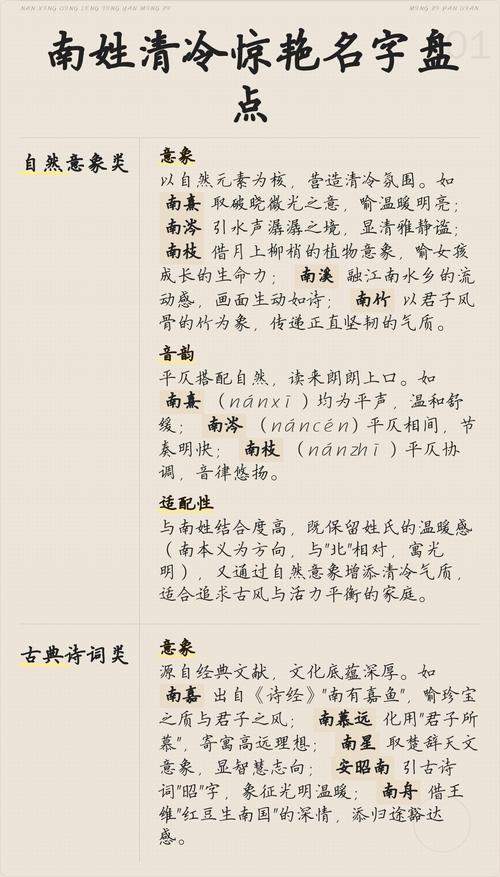 NAN XING QING LENG JING YAN MING ZI
MING ZI PAN DIAN
01
南姓清冷惊艳名字盘
点
自然意象类
意象
以自然元素为核，营造清冷氛围。如
南熹 取破晓微光之意，喻温暖明亮；
南涔 引水声潺潺之境，显清雅静谧；
南枝 借月上柳梢的植物意象，喻女孩
成长的生命力； 南溪 融江南水乡的流
动感，画面生动如诗； 南竹 以君子风
骨的竹为象，传递正直坚韧的气质。
音韵
平仄搭配自然，读来朗朗上口。如
南熹 （nánxī）均为平声，温和舒
缓； 南涔 （náncén）平仄相间，节
奏明快； 南枝 （nánzhī）平仄协
调，音律悠扬。
适配性
与南姓结合度高，既保留姓氏的温暖感
（南本义为方向，与"北"相对，寓光
明），又通过自然意象增添清冷气质，
适合追求古风与活力平衡的家庭。
古典诗词类
意象
源自经典文献，文化底蕴深厚。如
南嘉 出自《诗经》"南有嘉鱼"，喻珍宝
之质与君子之风； 南慕远 化用"君子所
慕"，寄寓高远理想； 南星 取楚辞天文
意象，显智慧志向； 安昭南 引古诗
词"昭"字，象征光明温暖； 南舟 借王
维"红豆生南国"的深情，添归途豁达
感。